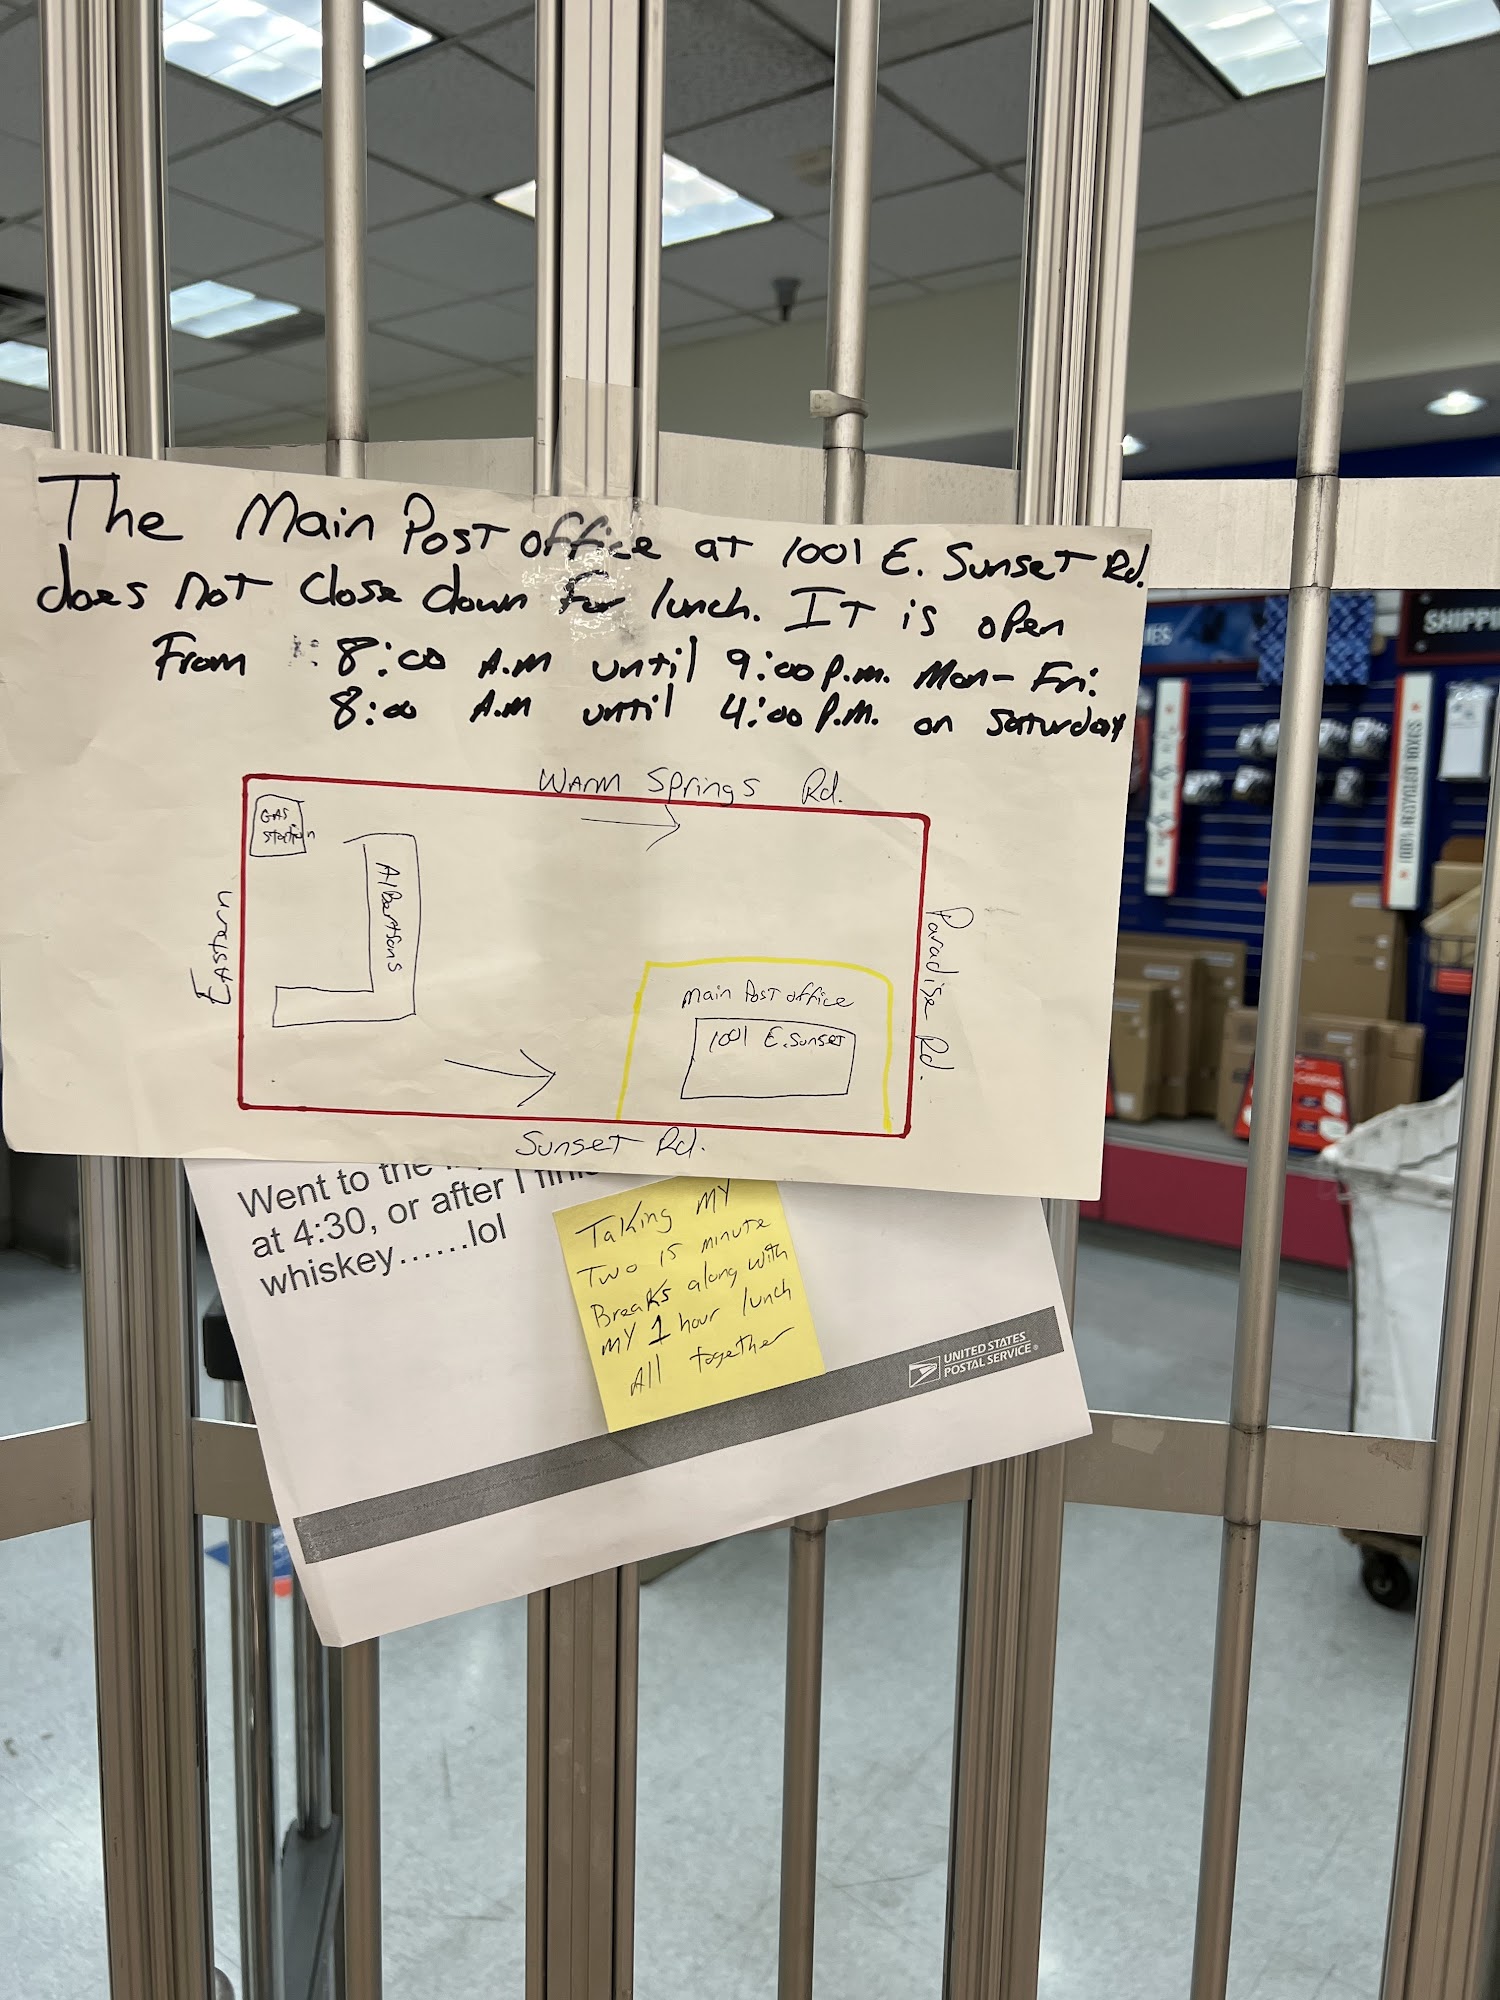 The Main Post office at 1001 E. Sunset Rd.
does not close down for lunch. It is open
From 8:00 A.M until 9:00 P.M. Mon-Fri:
8:00 A.M until 4:00 P.M. on Saturday
Warm Springs Rd.
GAS
station
Albertsons
Eastern
Paradise Rd.
Main Post office
1001 E. Sunset
Sunset Rd.
Went to the
at 4:30, or after I
whiskey......lol
Taking My
Two 15 minute
Breaks along with
my 1 hour lunch
All together
UNITED STATES
POSTAL SERVICE®
SHIPPI
100% RECYCLED BOXES